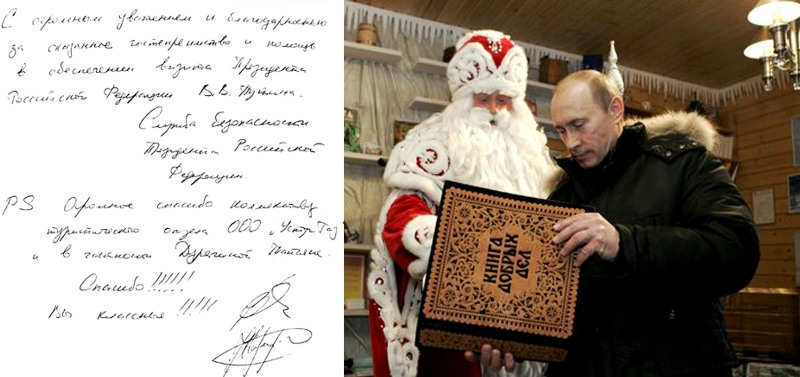 С огромным уважением и благодарностью
за оказанное гостеприимство и помощь
в обеспечении визита Президента
Российской Федерации В.В. Путина.
Служба безопасности
Президента Российской
Федерации.
PS Огромное спасибо коллективу
туристического отдела ООО „
и в Татьяне.
Спасибо!!!!!!
Вы классные !!!!!
КНИГА
ДОБРЫХ
ДЕЛ